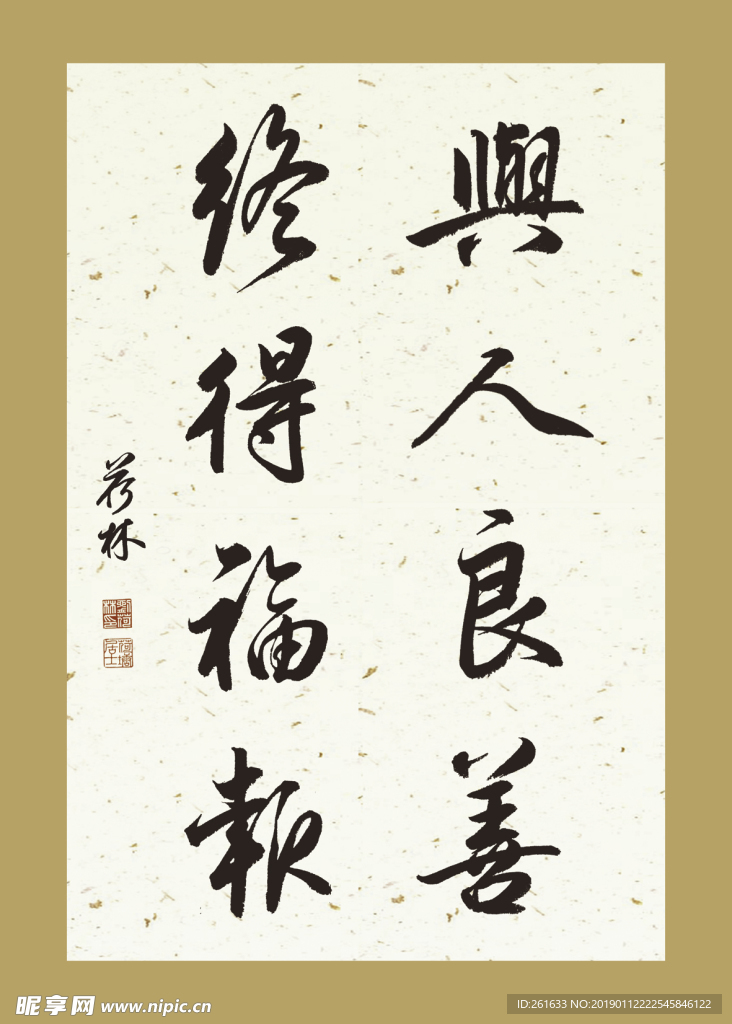 與人良善
終得福報
荷林
昵享网 www.nipic.cn
ID:261633 NO:20190112222545846122